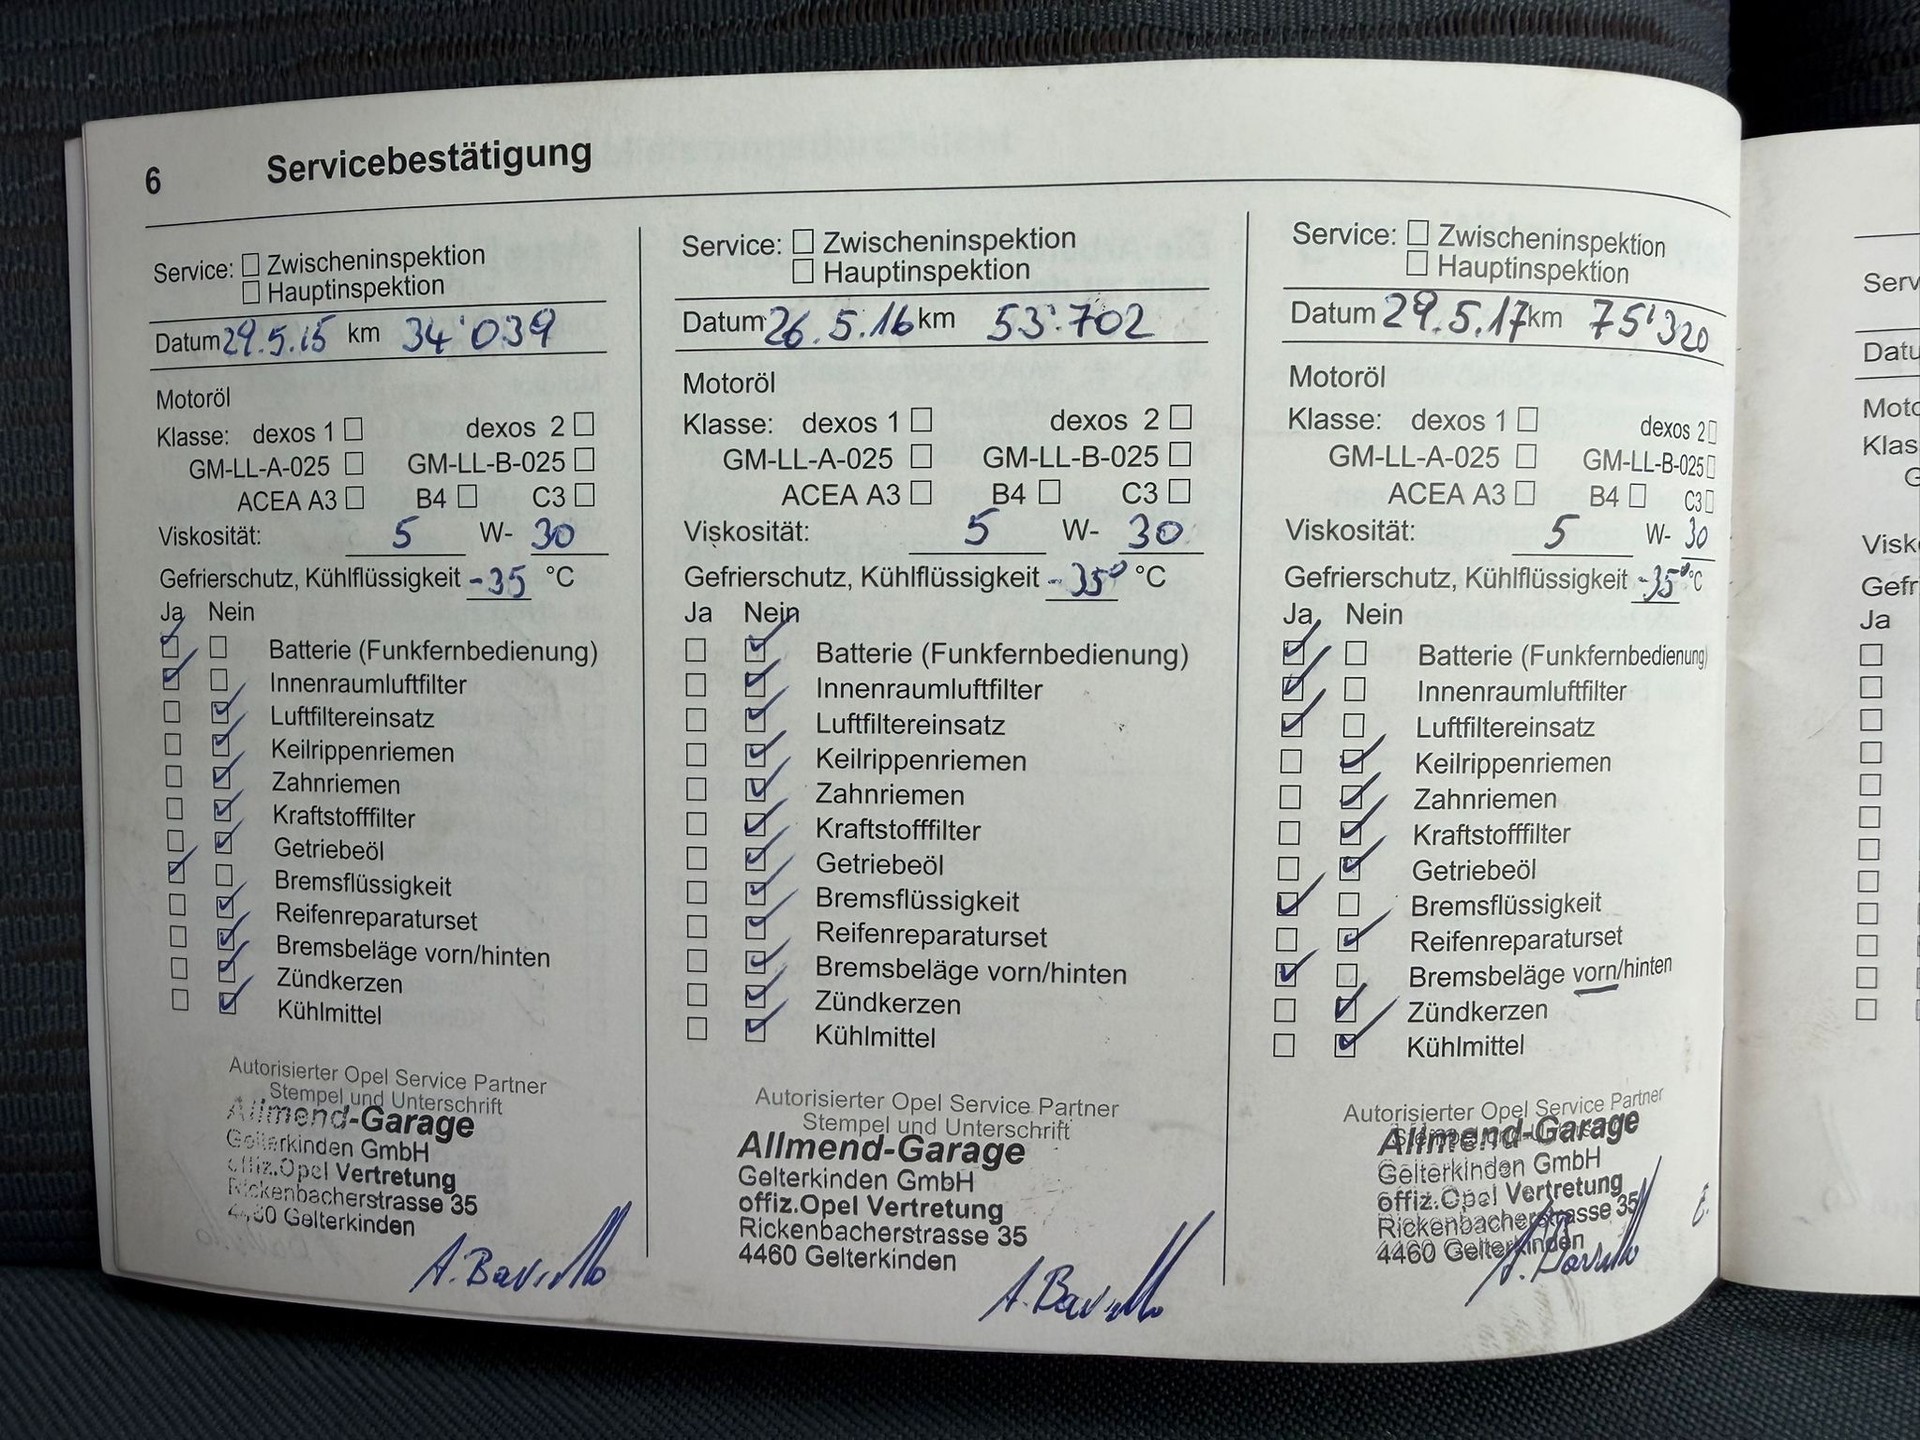 6 Servicebestätigung
Service: Zwischeninspektion
Hauptinspektion
Datum 29.5.15 km 34'039
Motoröl
Klasse: dexos 1 dexos 2
GM-LL-A-025 GM-LL-B-025
ACEA A3 B4 C3
Viskosität: 5 W- 30
Gefrierschutz, Kühlflüssigkeit -35 °C
Ja Nein
Batterie (Funkfernbedienung)
Innenraumluftfilter
Luftfiltereinsatz
Keilrippenriemen
Zahnriemen
Kraftstofffilter
Getriebeöl
Bremsflüssigkeit
Reifenreparaturset
Bremsbeläge vorn/hinten
Zündkerzen
Kühlmittel
Autorisierter Opel Service Partner
Stempel und Unterschrift
Allmend-Garage
Gelterkinden GmbH
offiz.Opel Vertretung
Rickenbacherstrasse 35
4460 Gelterkinden
Service: Zwischeninspektion
Hauptinspektion
Datum 26.5.16 km 53'702
Motoröl
Klasse: dexos 1 dexos 2
GM-LL-A-025 GM-LL-B-025
ACEA A3 B4 C3
Viskosität: 5 W- 30
Gefrierschutz, Kühlflüssigkeit -35° °C
Ja Nein
Batterie (Funkfernbedienung)
Innenraumluftfilter
Luftfiltereinsatz
Keilrippenriemen
Zahnriemen
Kraftstofffilter
Getriebeöl
Bremsflüssigkeit
Reifenreparaturset
Bremsbeläge vorn/hinten
Zündkerzen
Kühlmittel
Autorisierter Opel Service Partner
Stempel und Unterschrift
Allmend-Garage
Gelterkinden GmbH
offiz.Opel Vertretung
Rickenbacherstrasse 35
4460 Gelterkinden
Service: Zwischeninspektion
Hauptinspektion
Datum 29.5.17 km 75'320
Motoröl
Klasse: dexos 1 dexos 2
GM-LL-A-025 GM-LL-B-025
ACEA A3 B4 C3
Viskosität: 5 W- 30
Gefrierschutz, Kühlflüssigkeit -35° °C
Ja Nein
Batterie (Funkfernbedienung)
Innenraumluftfilter
Luftfiltereinsatz
Keilrippenriemen
Zahnriemen
Kraftstofffilter
Getriebeöl
Bremsflüssigkeit
Reifenreparaturset
Bremsbeläge vorn/hinten
Zündkerzen
Kühlmittel
Autorisierter Opel Service Partner
Allmend-Garage
Gelterkinden GmbH
offiz.Opel Vertretung
Rickenbacherstrasse 35
4460 Gelterkinden
Ja